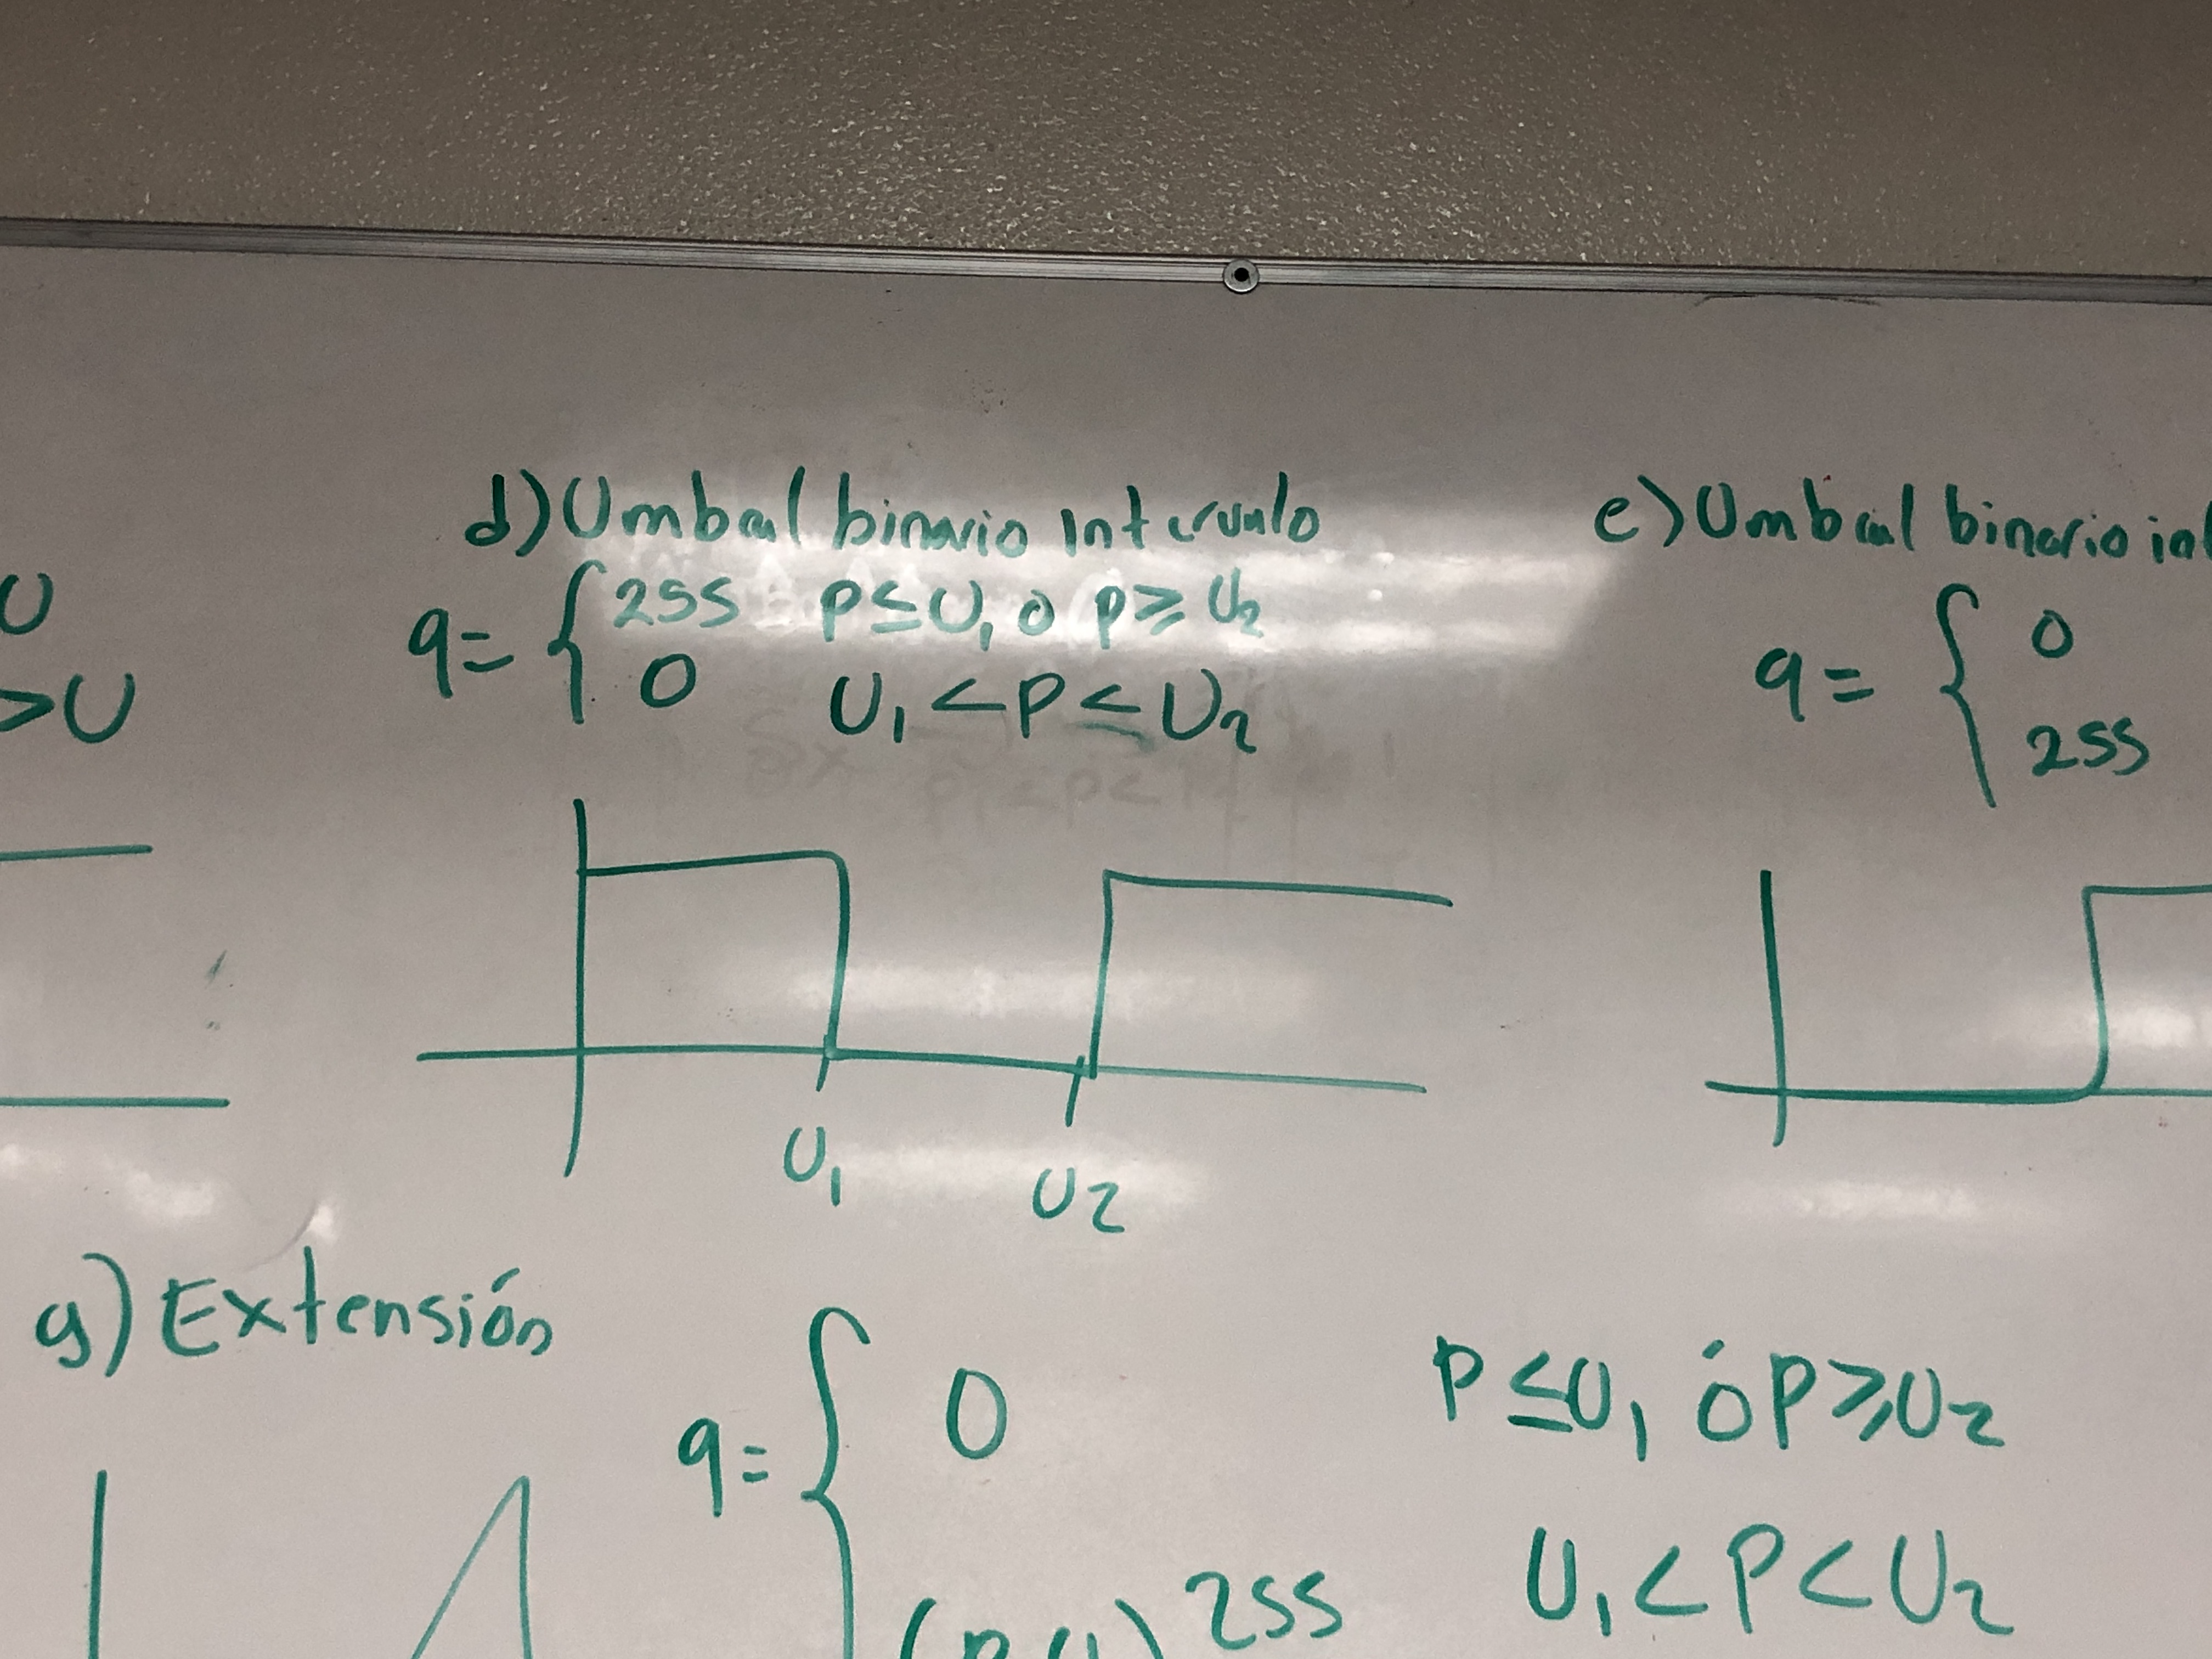 d) Umbral binario Intervalo
q = { 255 p ≤ U1 o p ≥ U2
0 U1 < p < U2
U1
U2
e) Umbral binario
q = { 0
255
U
> U
g) Extensión
q = { 0 p ≤ U1 ó p ≥ U2
255 U1 < p < U2